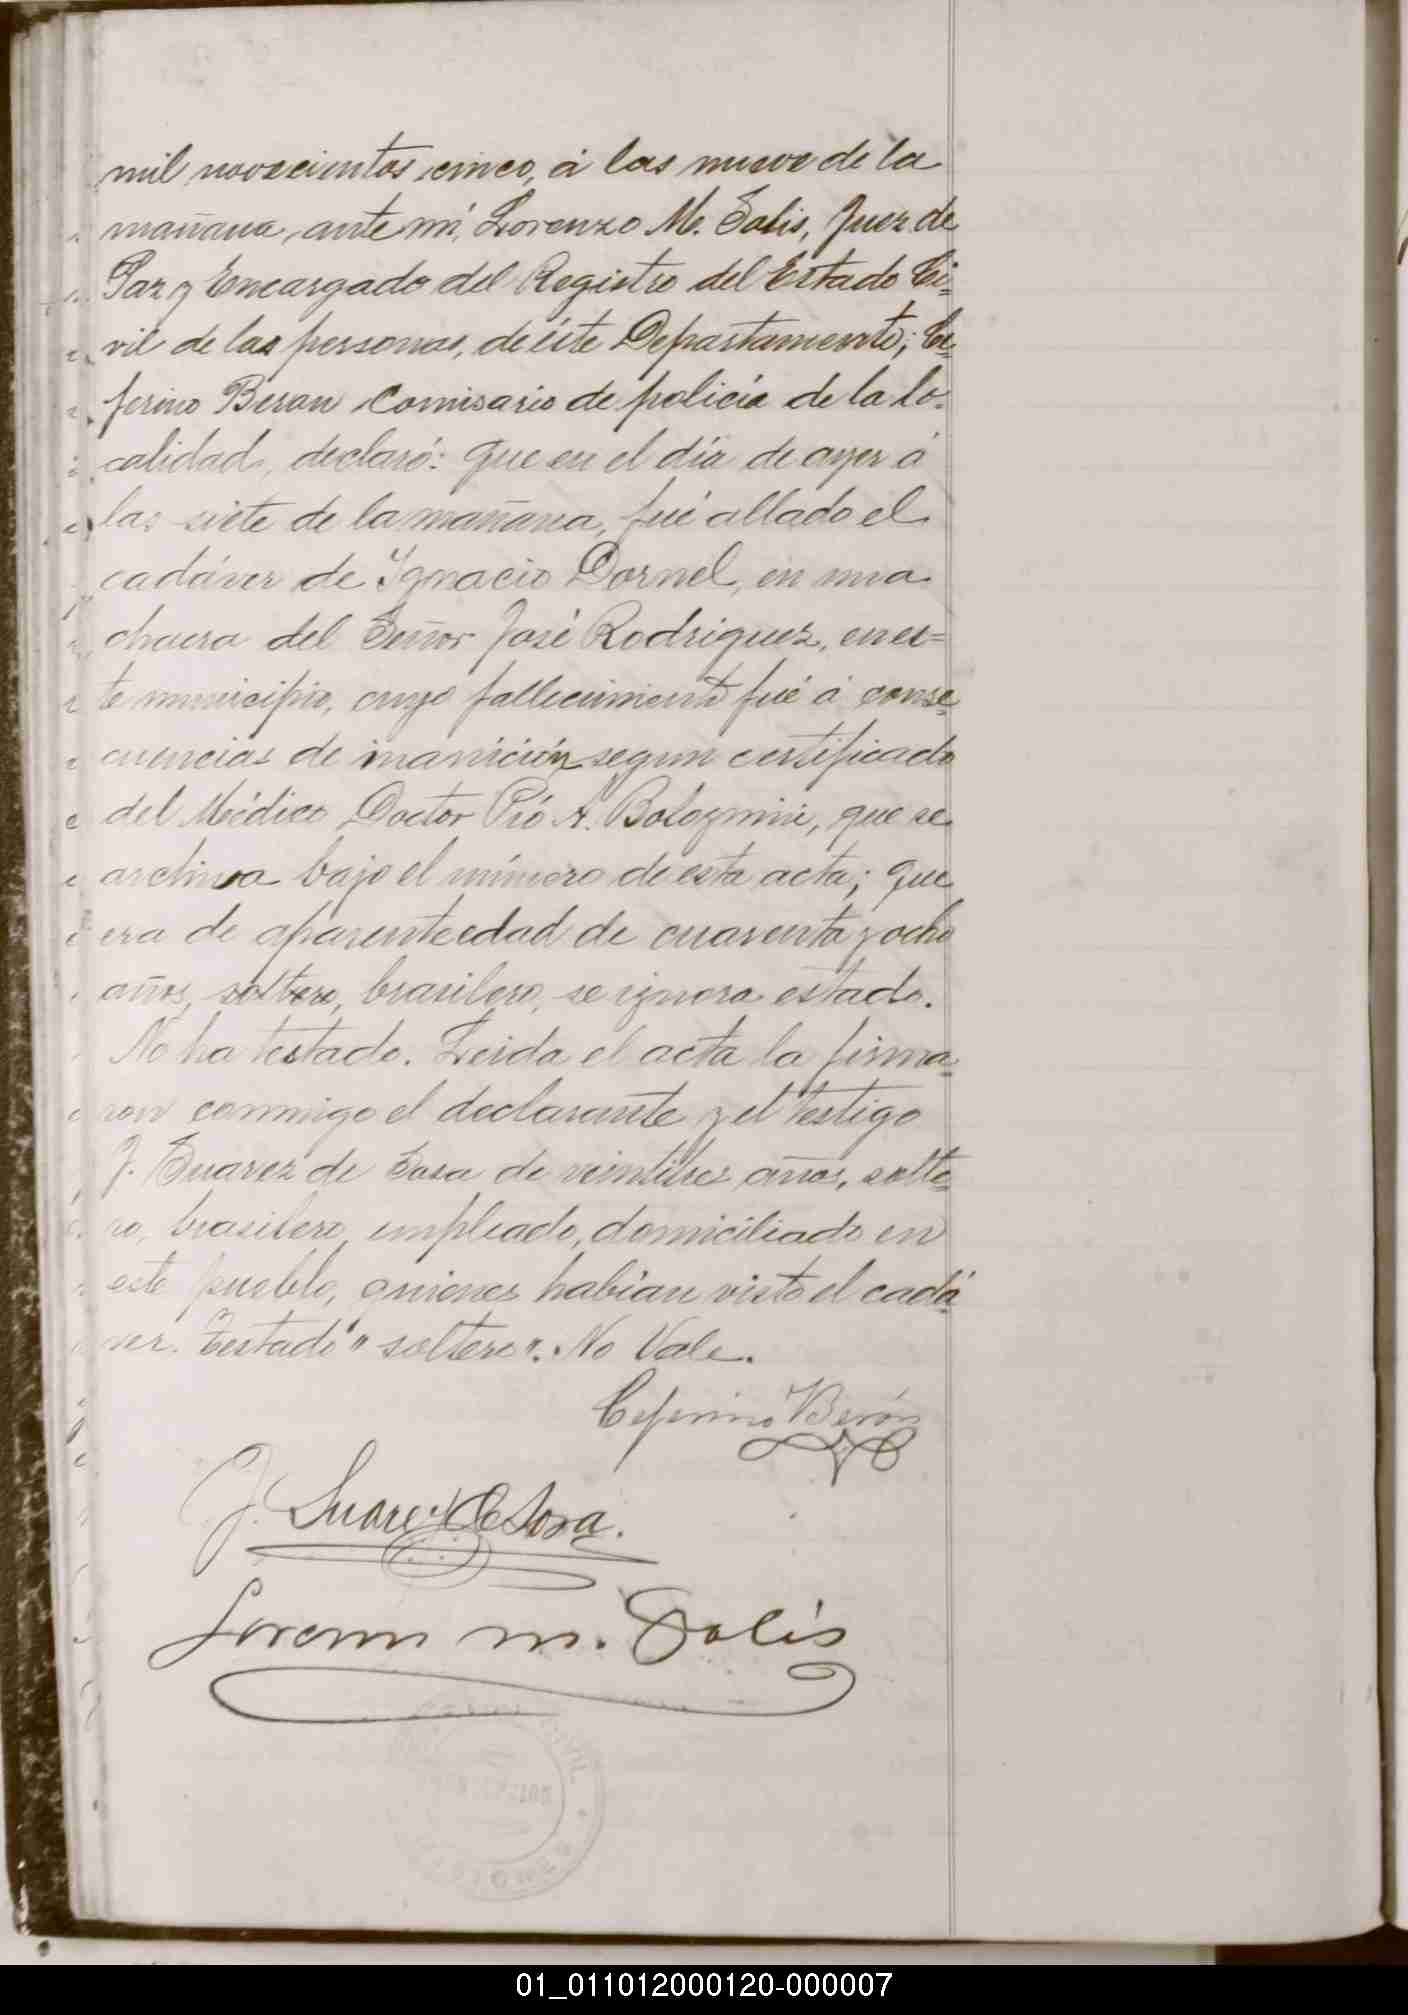 mil novecientos cinco, á las nueve de la
mañana, ante mí, Lorenzo M. Solis, Juez de
Paz y Encargado del Registro del Estado Ci=
vil de las personas, de éste Departamento; Ce=
ferino Beron Comisario de policía de la lo-
calidad, declaró: que en el día de ayer á
las siete de la mañana, fué allado el
cadáver de Ignacio Dornel, en una
chacra del Señor José Rodriguez, en es=
te municipio, cuyo fallecimiento fué á conse=
cuencias de inanición segun certificado
del Médico Doctor Pió A. Bolognini, que se
archiva bajo el número de esta acta; que
era de aparente edad de cuarenta y ocho
años, soltero, brasilero, se ignora estado.
No ha testado. Leida el acta la firma=
ron conmigo el declarante y el testigo
J. Suarez de Sosa de veintitres años, solte=
ro, brasilero, empleado, domiciliado en
este pueblo, quienes habían visto el cadá=
ver. Testado "soltero". No Vale.
Ceferino Berón
J. Suarez de Sosa.
Lorenzo M. Solís
01_011012000120-000007